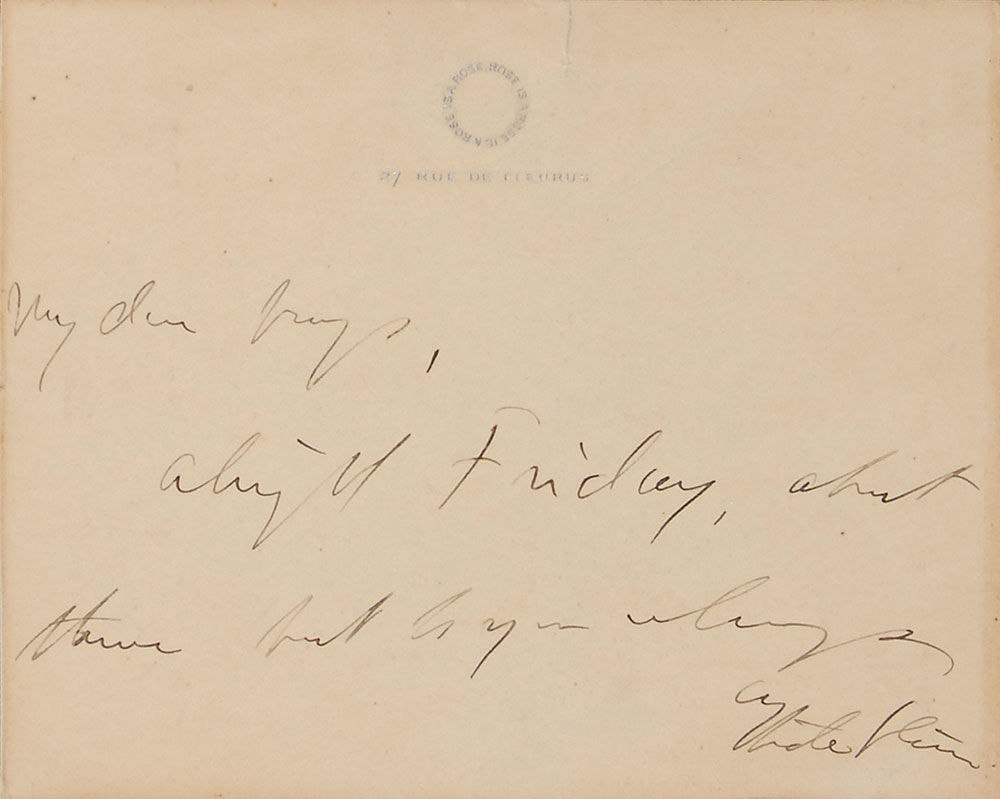 ROSE IS A ROSE IS A ROSE IS A ROSE
27 RUE DE FLEURUS
My dear boys,
alright Friday, about
three best to you always
Gertrude Stein.